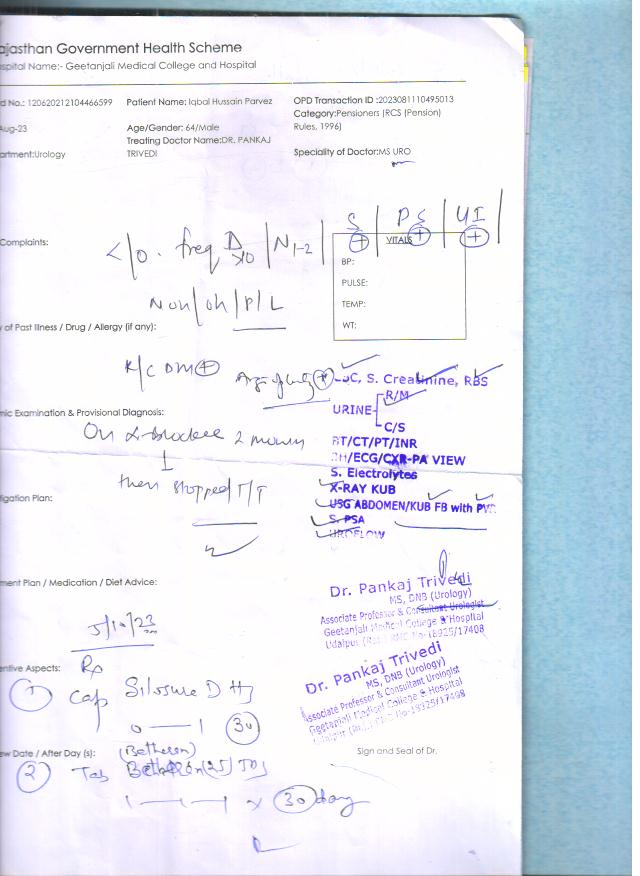 ajasthan Government Health Scheme
spital Name:- Geetanjali Medical College and Hospital
d No.: 120620212104466599
Patient Name: Iqbal Hussain Parvez
OPD Transaction ID :2023081110495013
Category:Pensioners (RCS (Pension) Rules, 1996)
Aug-23
Age/Gender: 64/Male
Treating Doctor Name:DR. PANKAJ TRIVEDI
artment:Urology
Speciality of Doctor:MS URO
S | PS | UI
+ + +
Complaints:
C/O. freq D | N1-2
VITALS
BP:
PULSE:
TEMP:
WT:
Non/on/P/L
y of Past Illness / Drug / Allergy (if any):
K/C DM +
CBC, S. Creatinine, RBS
URINE R/M
C/S
BT/CT/PT/INR
/ECG/CXR-PA VIEW
S. Electrolytes
X-RAY KUB
USG ABDOMEN/KUB FB with PVR
S. PSA
UROFLOW
mic Examination & Provisional Diagnosis:
On α-Blocker 2 months
↓
then stopped T/T
tigation Plan:
ment Plan / Medication / Diet Advice:
Dr. Pankaj Trivedi
MS, DNB (Urology)
Associate Professor & Consultant Urologist
Geetanjali Medical College & Hospital
Udaipur 18925/17408
5/10/23
entive Aspects:
Rx
1 Cap Silosure D
0 — 1 30
Dr. Pankaj Trivedi
MS, DNB (Urology)
Associate Professor & Consultant Urologist
Geetanjali Medical College & Hospital
ew Date / After Day (s):
Sign and Seal of Dr.
2 Tab
1 — 1 — 1 x 30 day